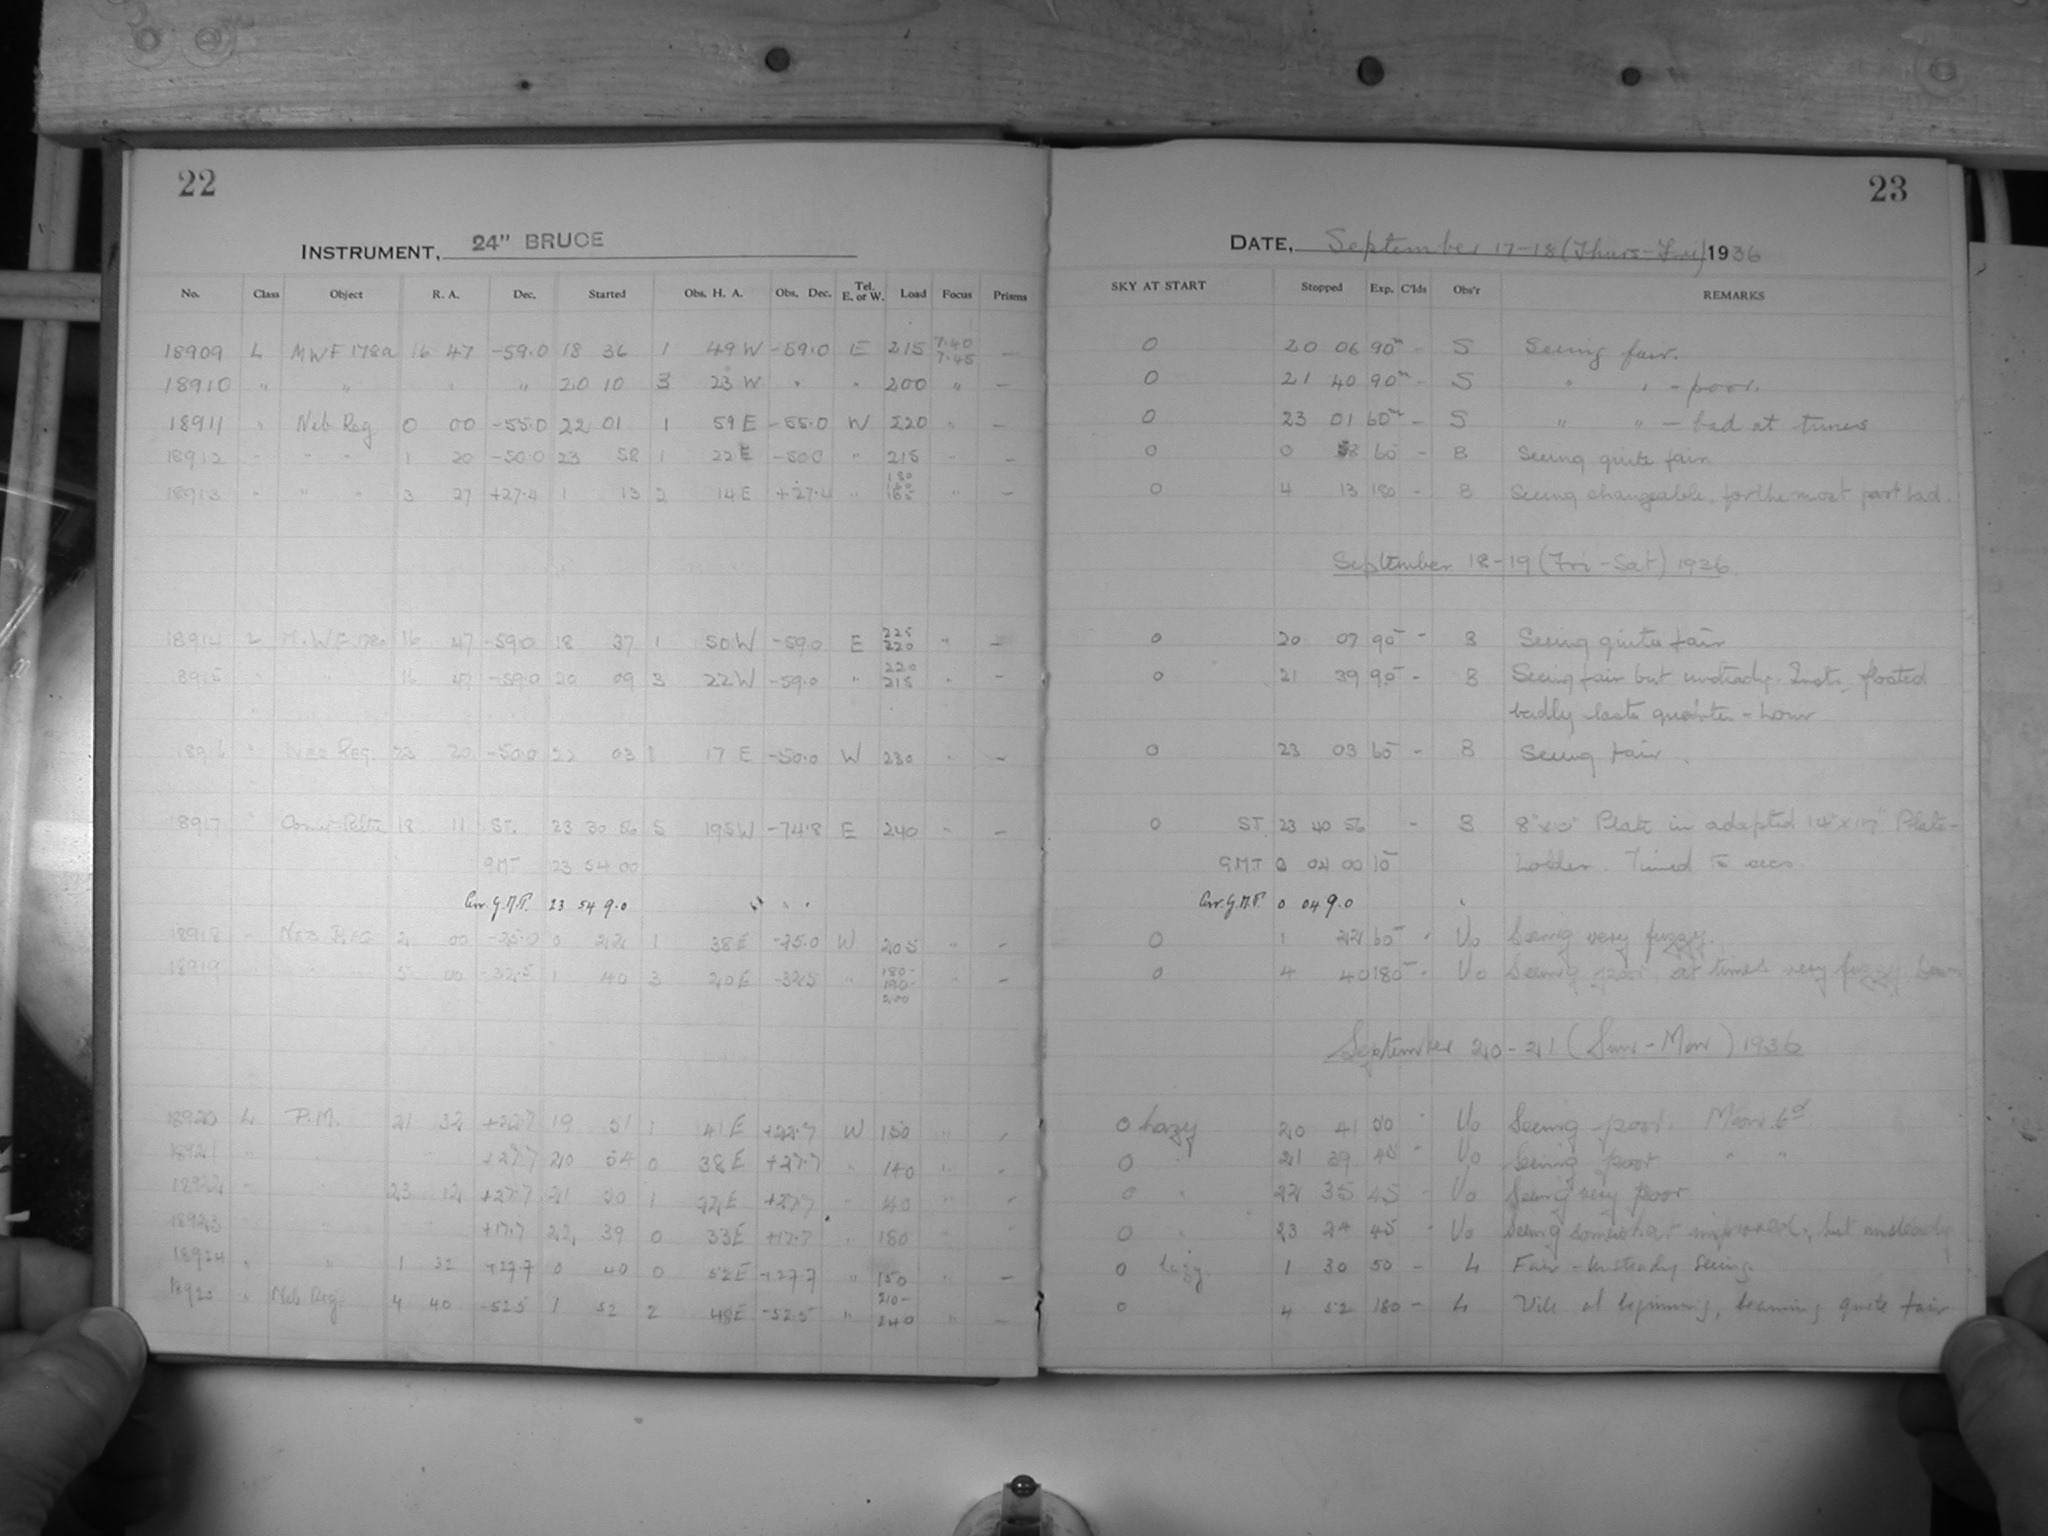 22
INSTRUMENT, 24" BRUCE
No. Class Object R. A. Dec. Started Obs. H. A. Obs. Dec. Tel. E. or W. Load Focus Prisms
18909 L MWF 178a 16 47 -59.0 18 36 1 49 W -59.0 E 215 7.40 7.45 -
18910 " " " " 20 10 3 23 W " " 200 " -
18911 " Neb Reg. 0 00 -55.0 22 01 1 59 E -55.0 W 220 " -
18912 " " " 1 20 -50.0 23 58 1 22 E -50.0 " 215 " -
18913 " " " 3 27 +27.4 1 13 2 14 E +27.4 " 165 " -
18914 L M.W.F. 178a 16 47 -59.0 18 37 1 50 W -59.0 E 225 220 " -
18915 " " 16 47 -59.0 20 09 3 22 W -59.0 " 220 215 " -
18916 " Neb Reg. 23 20 -50.0 22 03 1 17 E -50.0 W 230 " -
18917 " 18 11 ST. 23 30 56 5 19 W -74.8 E 240 " -
GMT 23 54 00
Corr. G.M.T. 23 54 9.0
18918 " NEB REG 2 00 -25.0 0 22 1 38 E -25.0 W 205 " -
18919 5 00 -32.5 1 40 3 20 E -32.5 " 180- 190- 200 " -
18920 L P.M. 21 32 +22.7 19 51 1 41 E +22.7 W 150 " -
18921 " " +27.7 20 54 0 38 E +27.7 " 140 " -
18922 " " 23 12 +27.7 21 50 1 22 E +27.7 " 40 " -
18923 " +17.7 22 39 0 33 E +17.7 " 180 "
18924 " " 1 32 +27.7 0 40 0 52 E +27.7 " 150 " -
18925 " Neb Reg. 4 40 -52.5 1 52 2 48 E -52.5 " 210- 240 " -
23
DATE, September 17-18 (Thurs-Fri) 1936
SKY AT START Stopped Exp. C'lds Obs'r REMARKS
0 20 06 90m - S Seeing fair.
0 21 40 90m - S " " - poor.
0 23 01 60m - S " " - bad at times
0 0 58 60 - B Seeing quite fair
0 4 13 180 - B Seeing changeable, for the most part bad.
September 18-19 (Fri-Sat) 1936
0 20 07 90 - B Seeing quite fair
0 21 39 90 - B Seeing fair but unsteady. Instr. floated
badly last quarter-hour
0 23 03 60 - B Seeing fair.
0 ST. 23 40 56 - B 8" x 10" Plate in adapted 14" x 17" Plate-
GMT 0 04 00 10 holder. Timed to secs.
Corr. G.M.T. 0 04 9.0
0 1 22 60 Uo Seeing very fuzzy.
0 4 40 180 Uo Seeing poor, at times very fuzzy.
September 20-21 (Sun-Mon) 1936
0 hazy 20 41 50 Uo Seeing poor. Moon 6d
0 " 21 39 45 Uo Seeing poor " "
0 " 22 35 45 - Uo Seeing very poor
0 " 23 24 45 Uo Seeing somewhat improved, but unsteady
0 hazy 1 30 50 - L Fair - Unsteady Seeing.
0 4 52 180 - L Vile at beginning, becoming quite fair